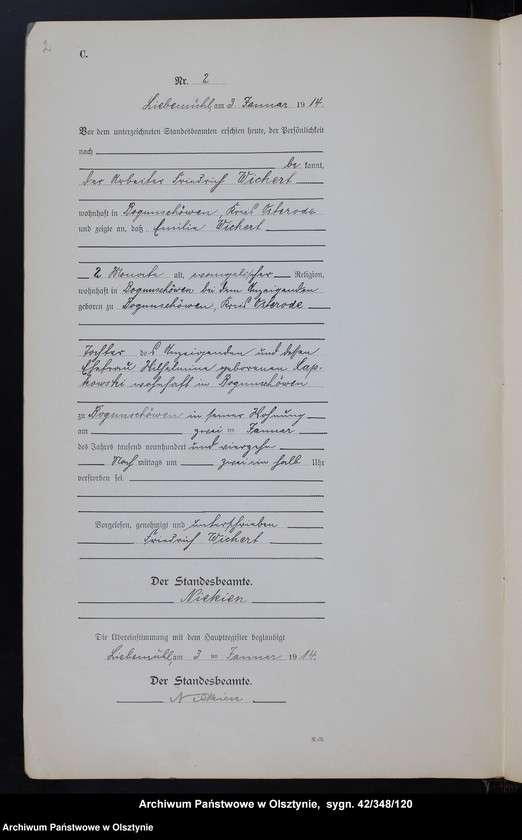 2
C.
Nr. 2
Liebemühl, am 3. Januar 1914.
Vor dem unterzeichneten Standesbeamten erschien heute, der Persönlichkeit
nach
be kannt,
der Arbeiter Friedrich Wichert
wohnhaft in Bogunschöwen, Kreis Osterode
und zeigte an, daß Emilie Wichert
2 Monate alt, evangelischer Religion,
wohnhaft in Bogunschöwen bei dem Anzeigenden
geboren zu Bogunschöwen, Kreis Osterode
Tochter des Anzeigenden und dessen
Ehefrau Wilhelmine geborenen Lap-
kowski wohnhaft in Bogunschöwen
zu Bogunschöwen in seiner Wohnung
am zwei ten Januar
des Jahres tausend neunhundert und vierzehn
Nach mittags um zwei ein halb Uhr
verstorben sei.
Vorgelesen, genehmigt und unterschrieben
Friedrich Wichert
Der Standesbeamte.
Niekien
Die Übereinstimmung mit dem Hauptregister beglaubigt
Liebemühl, am 3 ten Januar 1914.
Der Standesbeamte.
Niekien
Archiwum Państwowe w Olsztynie, sygn. 42/348/120
Archiwum Państwowe w Olsztynie